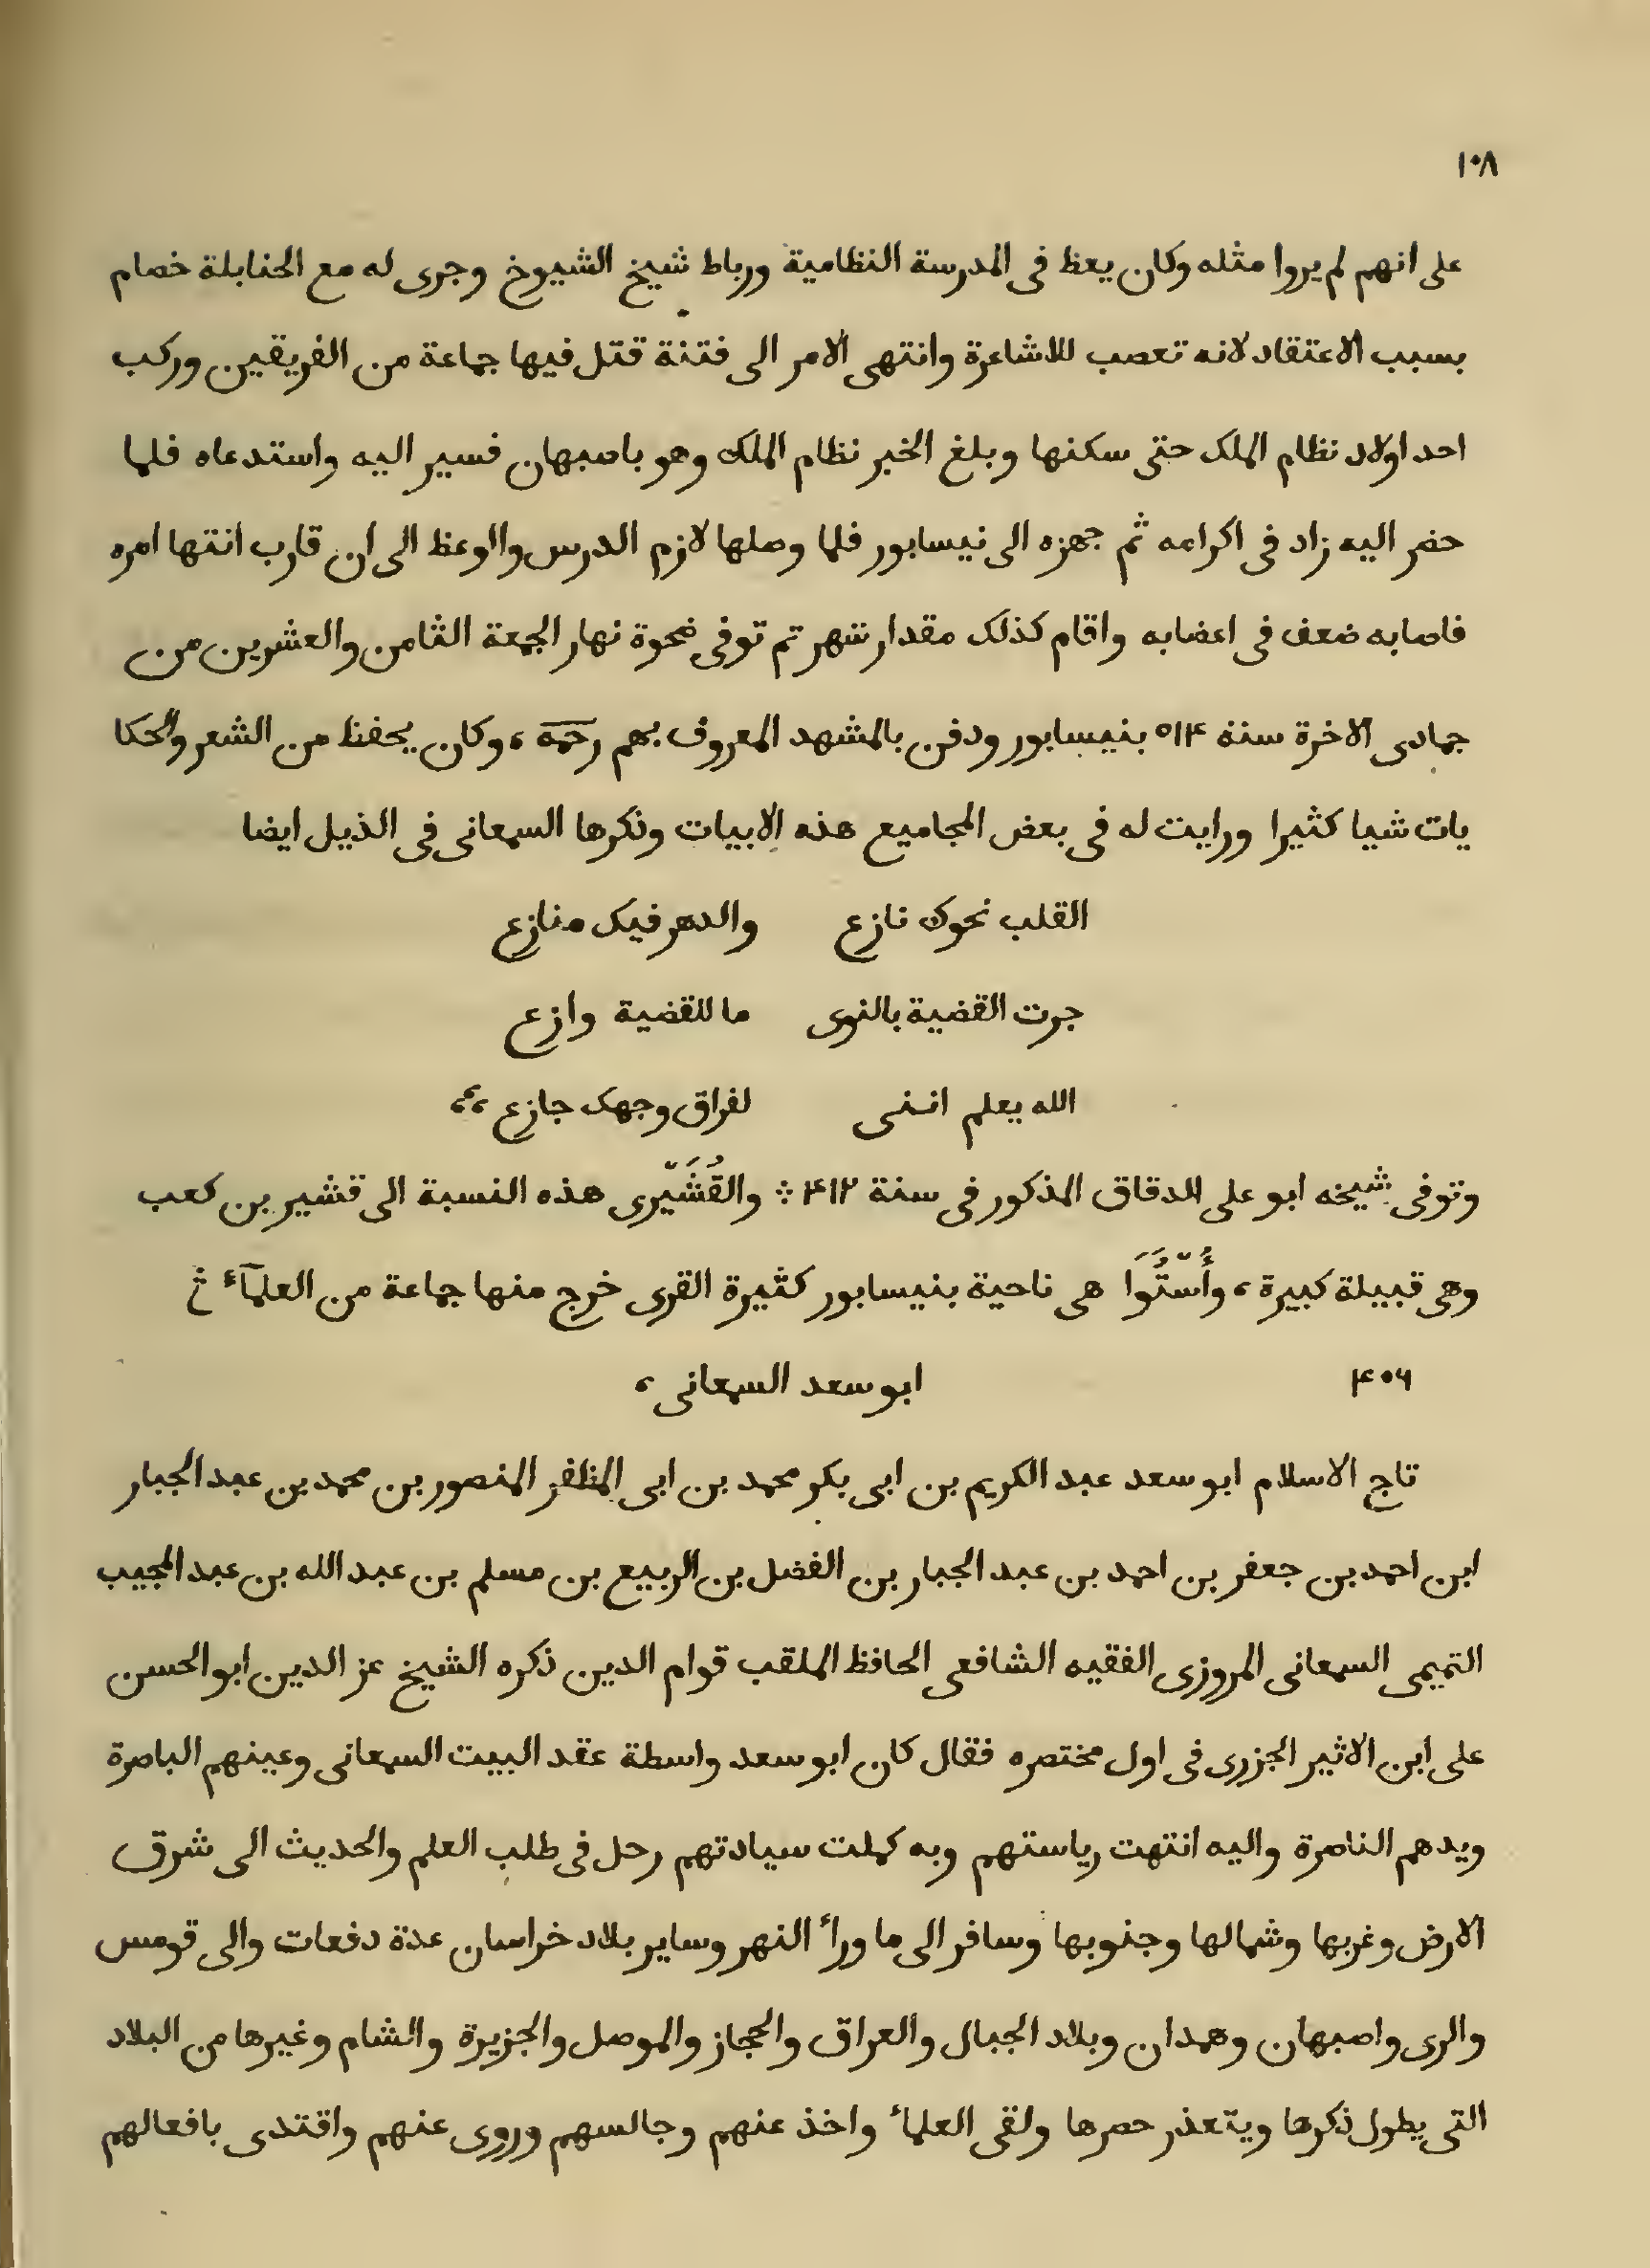 ١٠٨
على انهم لم يروا مثله وكان يعظ فى المدرسة النظامية ورباط شيخ الشيوخ وجرى له مع الحنابلة خصام
بسبب الاعتقاد لانه تعصب للاشاعرة وانتهى الامر الى فتنة قتل فيها جماعة من الفريقين وركب
احد اولاد نظام الملك حتى سكنها وبلغ الخبر نظام الملك وهو باصبهان فسير اليه واستدعاه فلما
حضر اليه زاد فى اكرامه ثم جهزه الى نيسابور فلما وصلها لازم الدرس والوعظ الى ان قارب انتها امره
فاصابه ضعف فى اعضايه واقام كذلك مقدار شهر تم توفى ضحوة نهار الجمعة الثامن والعشرين من
جمادى الاخرة سنة ٥١۴ بنيسابور ودفن بالمشهد المعروف بهم رحمه ، وكان يحفظ من الشعر والحكا
يات شيا كثيرا ورايت له فى بعض المجاميع هذه الابيات وذكرها السمعانى فى الذيل ايضا
القلب نحوك نازع والدهر فيك منازع
جرت القضية بالنوى ما للقضية وازع
الله يعلم اننى لفراق وجهك جازع ،،،
وتوفى شيخه ابو على الدقاق المذكور فى سنة ۴١٢ ⁘ والقُشَيْرى هذه النسبة الى قشير بن كعب
وهى قبيلة كبيرة ، وأُسْتُوَا هى ناحية بنيسابور كثيرة القرى خرج منها جماعة من العلمآء ⁘
۴٠٦ ابو سعد السمعانى ،
تاج الاسلام ابو سعد عبد الكريم بن ابى بكر محمد بن ابى المظفر المنصور بن محمد بن عبد الجبار
ابن احمد بن جعفر بن احمد بن عبد الجبار بن الفضل بن الربيع بن مسلم بن عبد الله بن عبد المجيب
التميمى السمعانى المروزى الفقيه الشافعى الحافظ الملقب قوام الدين ذكره الشيخ عز الدين ابو الحسن
على ابن الاثير الجزرى فى اول مختصره فقال كان ابو سعد واسطة عقد البيت السمعانى وعينهم الباصرة
ويدهم الناصرة واليه انتهت رياستهم وبه كملت سيادتهم رحل فى طلب العلم والحديث الى شرق
الارض وغربها وشمالها وجنوبها وسافر الى ما وراء النهر وساير بلاد خراسان عدة دفعات والى قومس
والرى واصبهان وهمدان وبلاد الجبال والعراق والحجاز والموصل والجزيرة والشام وغيرها من البلاد
التى يطول ذكرها ويتعذر حصرها ولقى العلماء واخذ عنهم وجالسهم وروى عنهم واقتدى بافعالهم